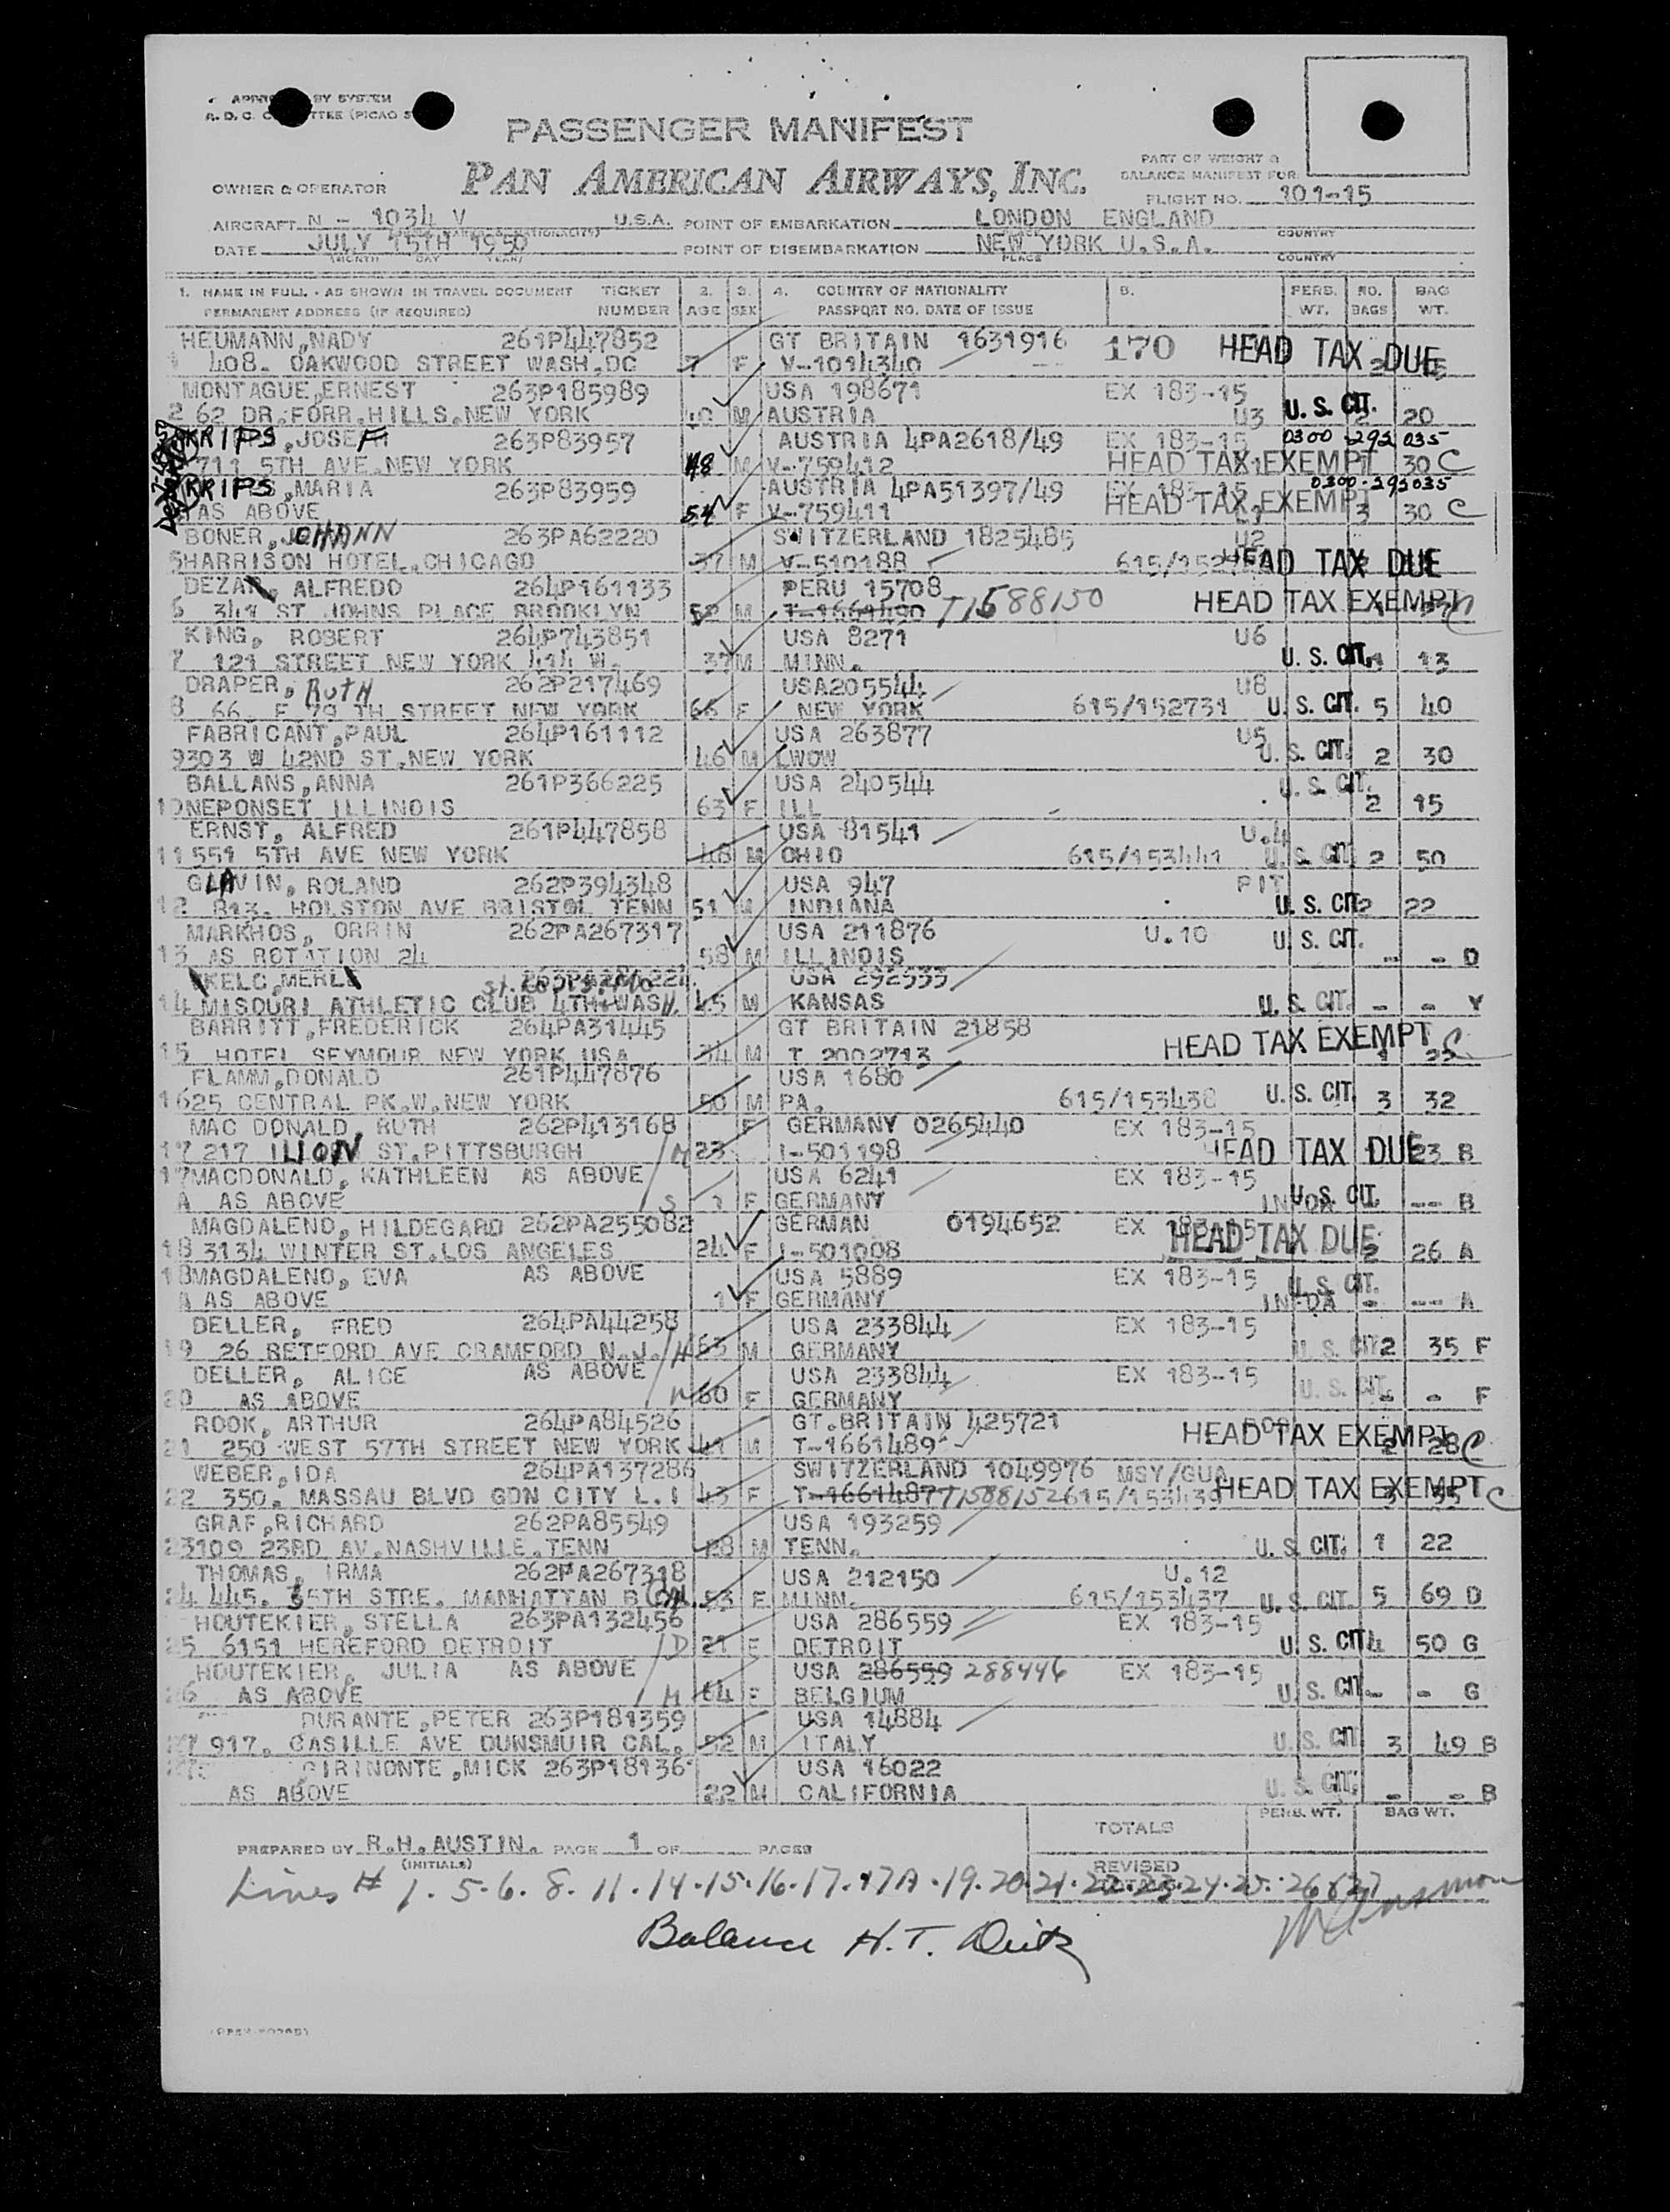 APPRO BY SYSTEM
A. D. C. C TTEE (PICAO S
PASSENGER MANIFEST
PAN AMERICAN AIRWAYS, INC.
PART OF WEIGHT &
BALANCE MANIFEST FOR
OWNER & OPERATOR
FLIGHT NO. 101-15
AIRCRAFT N - 1034 V U.S.A. POINT OF EMBARKATION LONDON ENGLAND
COUNTRY
DATE JULY 15TH 1950 POINT OF DISEMBARKATION NEW YORK U.S.A.
(MONTH DAY YEAR) PLACE COUNTRY
1. NAME IN FULL - AS SHOWN IN TRAVEL DOCUMENT TICKET 2. 3. 4. COUNTRY OF NATIONALITY 5. PERS. NO. BAG
PERMANENT ADDRESS (IF REQUIRED) NUMBER AGE SEX PASSPORT NO. DATE OF ISSUE WT. BAGS WT.
HEUMANN,NADY 261P447852 GT BRITAIN 1631916 170 HEAD TAX DUE
1 408. OAKWOOD STREET WASH.DC 7 F V-1014340
MONTAGUE,ERNEST 263P185989 USA 198671 EX 183-15
2 62 DR.FORR.HILLS.NEW YORK M AUSTRIA U3 U.S. CIT. 2 20
KRIPS,JOSEF 263P83957 AUSTRIA 4PA2618/49 EX 183-15 0300 292 035
711 5TH AVE.NEW YORK 48 M V-759412 HEAD TAX EXEMPT 30 C
KRIPS,MARIA 263P83959 AUSTRIA 4PA51397/49 EX 183-15 0300-292035
AS ABOVE 54 F V-759411 HEAD TAX EXEMPT 3 30 C
BONER,JOHANN 263PA62220 SWITZERLAND 1825485 U2
5 HARRISON HOTEL.CHICAGO 37 M V-510188 615/152 HEAD TAX DUE
DEZAR, ALFREDO 264P161133 PERU 15708
6 341 ST JOHNS PLACE BROOKLYN 52 M T-1661490 T1588150 HEAD TAX EXEMPT
KING, ROBERT 264P743851 USA 8271 U6
7 121 STREET NEW YORK 414 W. 37 M MINN. U.S. CIT. 1 13
DRAPER, RUTH 262P217469 USA205544 U8
8 66. E 79 TH STREET NEW YORK 66 F NEW YORK 615/152731 U.S. CIT. 5 40
FABRICANT,PAUL 264P161112 USA 263877 U5
9303 W 42ND ST.NEW YORK 46 M LWOW U.S. CIT. 2 30
BALLANS,ANNA 261P366225 USA 240544 U.S. CIT.
10 NEPONSET ILLINOIS 63 F ILL 2 15
ERNST, ALFRED 261P447858 USA 81541 U.4
11 551 5TH AVE NEW YORK 48 M OHIO 615/153441 U.S. CIT. 2 50
GLAVIN, ROLAND 262P394348 USA 947 PIT
12 813. HOLSTON AVE BRISTOL TENN 51 M INDIANA U.S. CIT. 2 22
MARKHOS, ORRIN 262PA267317 USA 211876 U.10 U.S. CIT.
13 AS ROTATION 24 58 M ILLINOIS - - D
KELC,MERL USA 292535
14 MISOURI ATHLETIC CLUB 4TH+WASH. 45 M KANSAS U.S. CIT. - - Y
BARRITT,FREDERICK 264PA31445 GT BRITAIN 21858 HEAD TAX EXEMPT C
15 HOTEL SEYMOUR NEW YORK USA 34 M T 2002713 1 22
FLAMM,DONALD 261P447876 USA 1680
16 25 CENTRAL PK.W.NEW YORK 50 M PA. 615/153438 U.S. CIT. 3 32
MAC DONALD, RUTH 262P413168 F GERMANY 0265440 EX 183-15
17 217 ILION ST.PITTSBURGH M 23 I-501198 HEAD TAX DUE 23 B
17 MACDONALD, KATHLEEN AS ABOVE USA 6241 EX 183-15
A AS ABOVE S 1 F GERMANY U.S. CIT. --- B
MAGDALENO, HILDEGARD 262PA255082 GERMAN 0194652 EX 183-15
18 3134 WINTER ST.LOS ANGELES 24 F I-501008 HEAD TAX DUE 2 26 A
18 MAGDALENO, EVA AS ABOVE USA 5889 EX 183-15 U.S. CIT.
A AS ABOVE 1 F GERMANY - --- A
DELLER, FRED 264PA44258 USA 233844 EX 183-15
19 26 RETFORD AVE CRAMFORD N.J. M 63 M GERMANY U.S. CIT. 2 35 F
DELLER, ALICE AS ABOVE USA 233844 EX 183-15
20 AS ABOVE M 60 F GERMANY U.S. CIT. - - F
ROOK, ARTHUR 264PA84526 GT.BRITAIN 425721
21 250 WEST 57TH STREET NEW YORK 41 M T-1661489 HEAD TAX EXEMPT 28 C
WEBER,IDA 264PA137286 SWITZERLAND 1049976 MSY/GUA
22 350. MASSAU BLVD GDN CITY L.I 43 F T-1661487 T1588152 615/153439 HEAD TAX EXEMPT C
GRAF,RICHARD 262PA85549 USA 193259
23 109 23RD AV.NASHVILLE.TENN 28 M TENN. U.S. CIT. 1 22
THOMAS, IRMA 262PA267318 USA 212150 U.12
24 445. 35TH STRE. MANHATTAN B 53 F MINN. 615/153437 U.S. CIT. 5 69 D
HOUTEKIER, STELLA 263PA132456 USA 286559 EX 183-15
25 6151 HEREFORD DETROIT D 21 F DETROIT U.S. CIT. 4 50 G
HOUTEKIER, JULIA AS ABOVE USA 286559 288446 EX 183-15
26 AS ABOVE M 64 F BELGIUM U.S. CIT. - - G
DURANTE,PETER 263P181359 USA 14884
27 917. CASILLE AVE DUNSMUIR CAL. 52 M ITALY U.S. CIT 3 49 B
GIRINONTE,MICK 263P18136 USA 16022
AS ABOVE 22 M CALIFORNIA U.S. CIT. - - B
TOTALS PERS. WT. BAG WT.
PREPARED BY R.H.AUSTIN. PAGE 1 OF PAGES
(INITIALS) REVISED
Lines # 1.5.6.8.11.14.15.16.17.17A.19.20.21.22.23.24.25.26 & 27
Balance H.T. Deitz